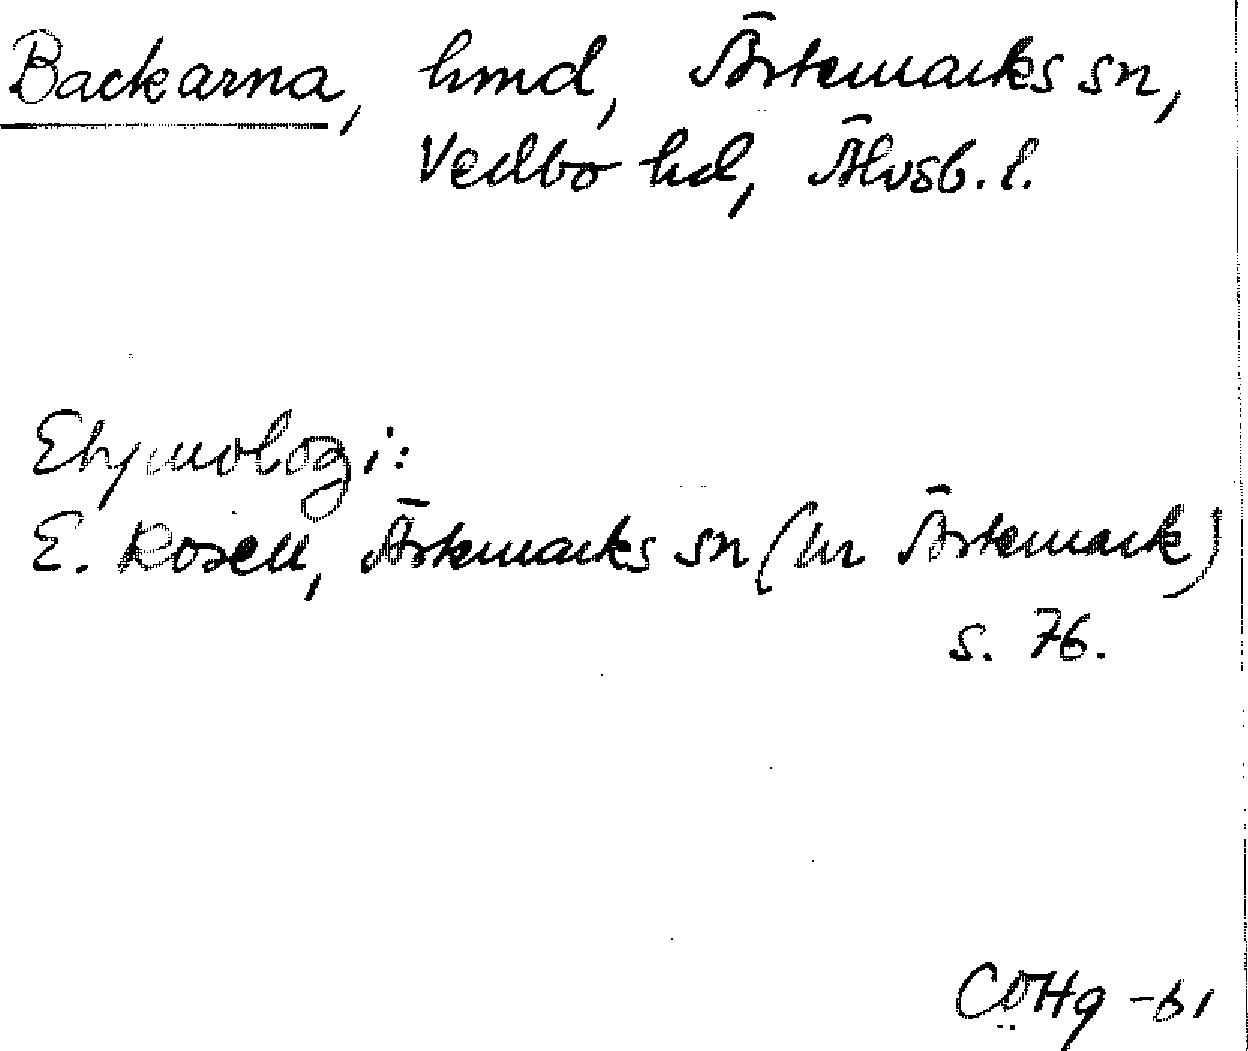 Backarna, hmd, Ärtemarks sn,
Vedbo hd, Älvsb. l.
Etymologi:
E. Rosell, Ärtemarks sn (ur Ärtemark)
s. 76.
-61